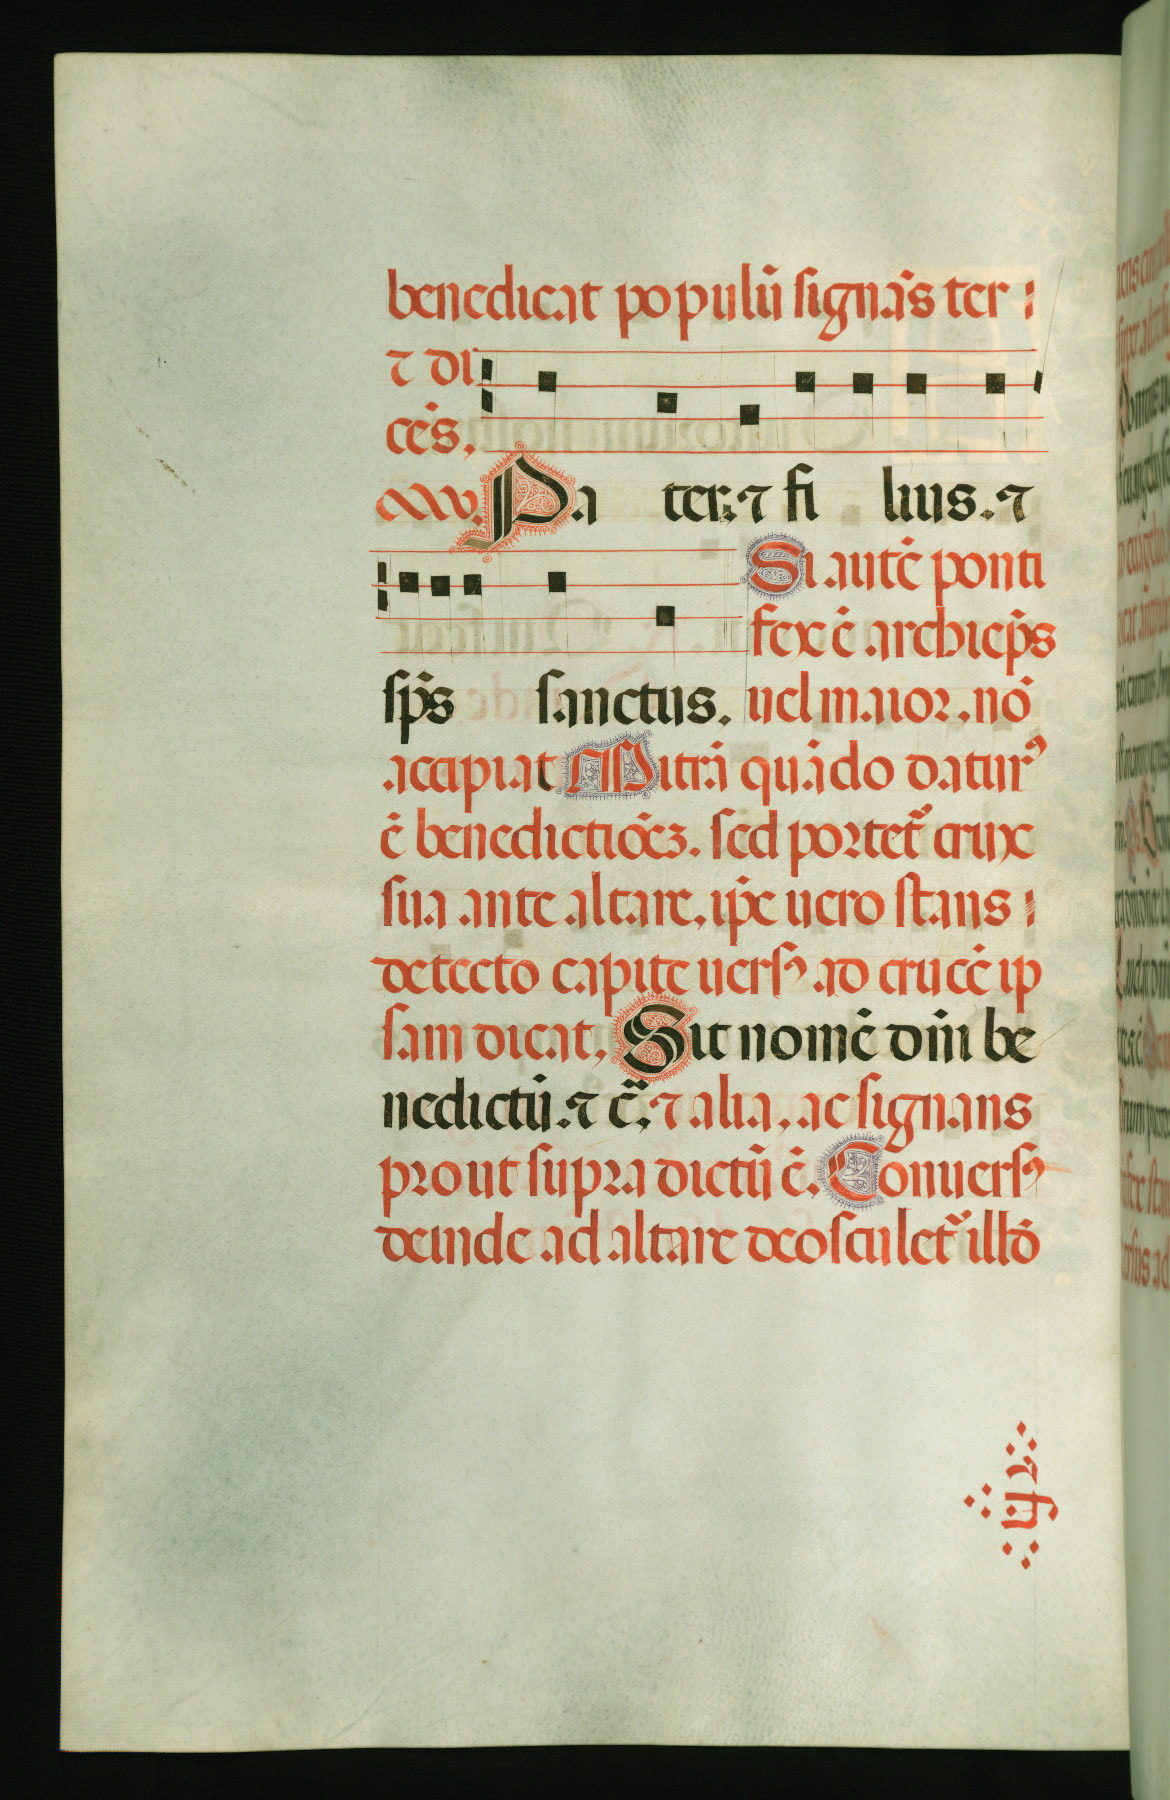 benedicat populū signās ter
⁊ di
cēs,
Pa ter. ⁊ fi lius. ⁊
Si autē ponti
fex ē archiep̄s
sp̄s sanctus. uel maior, nō
accipiat Mitrā quādo datur᾽
ē benedictiōez. sed portet᷑ crux
sua ante altare, ip̄e uero stans
detecto capite uersꝰ ad crucē ip
sam dicat, Sit nomē dn̄i be
nedictū. ⁊ c̄. ⁊ alia, ac signans
prout supra dictū ē. Conuersꝰ
deinde ad altare deosculet᷑ illō